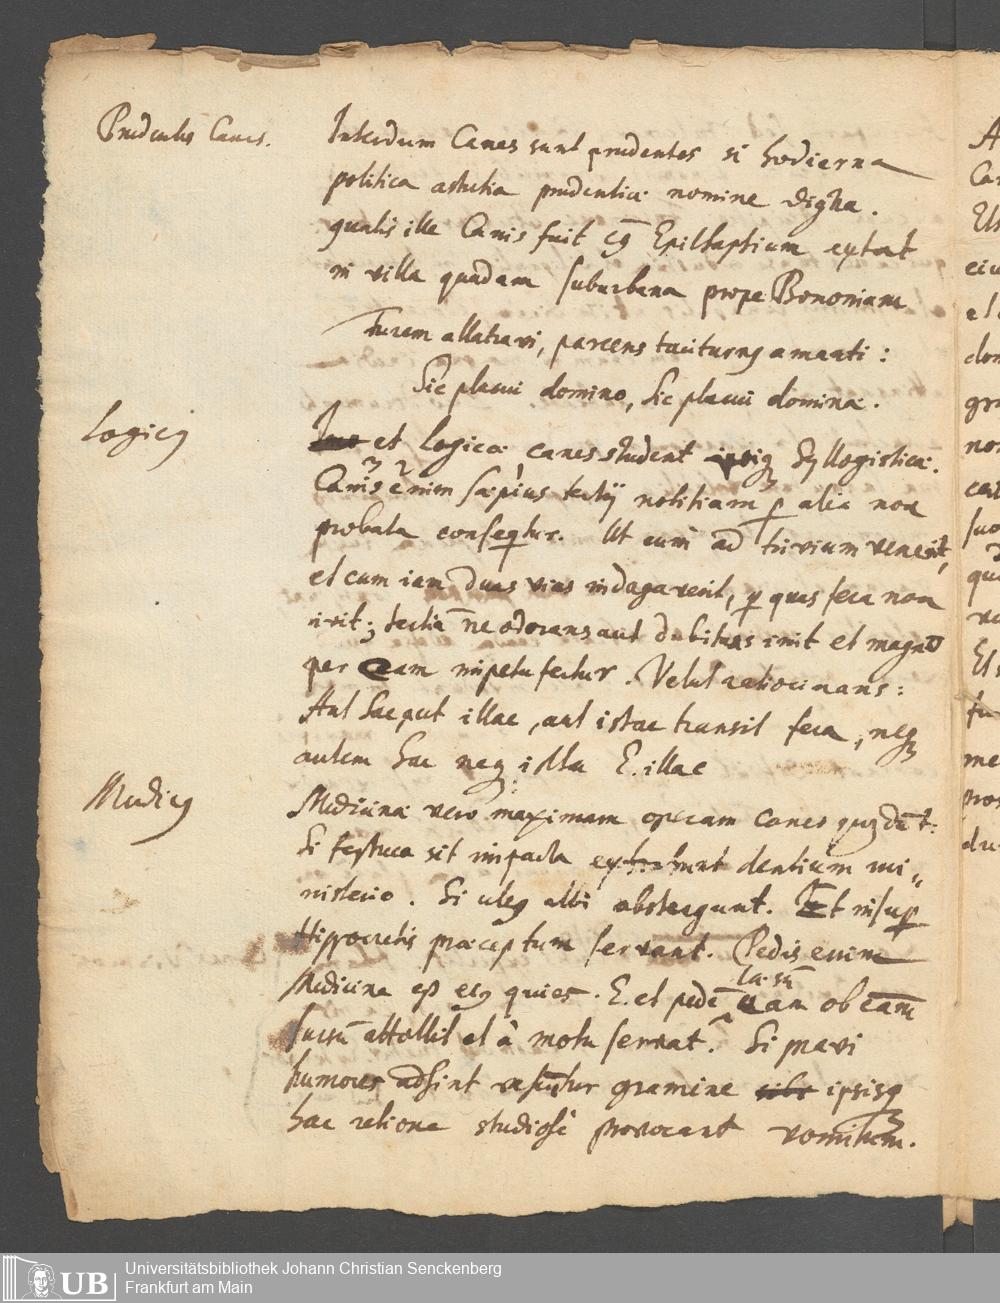 Prudentes Canes.
Interdum Canes sunt prudentes si hodierna
politica astutia prudentiæ nomine digna.
qualis ille Canis fuit cuius Epitaphium extat
in villa quadam suburbana prope Bononiam
Furem allatravi, parcens taciturnus amanti:
Sic placui domino, Sic placui dominæ.
Logicus
et Logicæ canes student ipsiq₃ Syllogisticæ.
Canis enim sæpius tertij notitiam per alia non
probata consequitur. Ut cum ad trivium venerit,
et cum iam duas vias indagaverit, per quas fera non
ivit; tertiam ne odorans aut dubitans init et magno
per eam impetu fertur. Velut ratiocinans:
Aut hac aut illac, aut istac transit fera, neq₃
autem hac neq₃ illa E. illac
Medicus
Medicinæ vero maximam operam canes
Si festuca sit impacta extrahunt dentium mi„
nisterio. Si ulcus alibi abstergunt. Et insuper
Hippocratis præceptum servant. Pedis enim
Medicina est eius quies. E. et pedem
læsum
ob eam
sursum attollit et à motu servat. Si pravi
humores adsint vescuntur gramine ipsisq₃
hac ratione studiosè provocant vomitum.